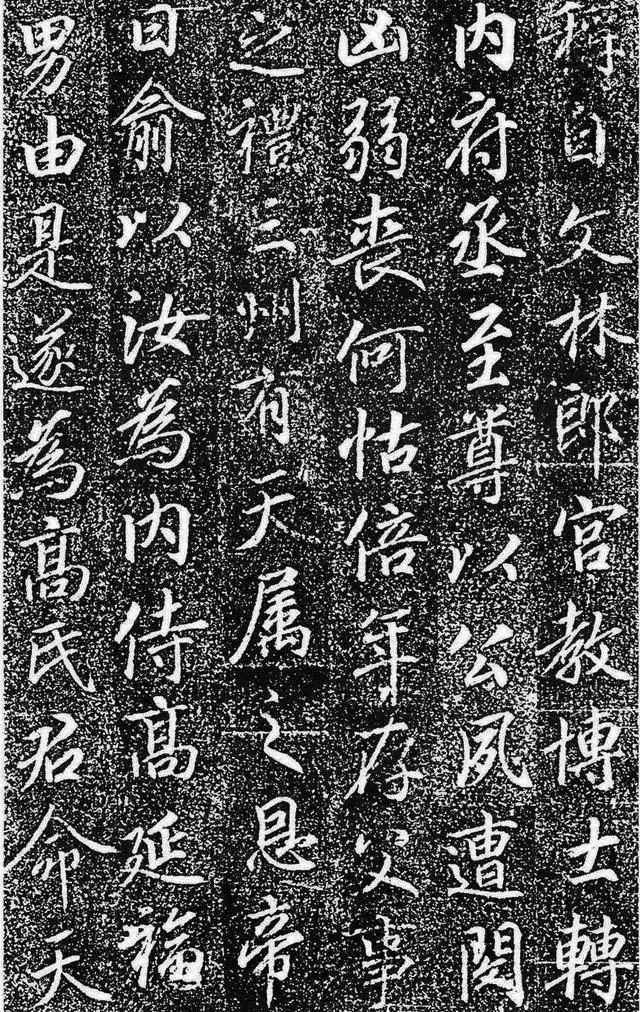 稱自文林郎宮教博士轉
内府丞至尊以公夙遭閔
凶弱喪何怙倍年存父事
之禮三州有天属之恩帝
曰俞以汝為内侍髙延福
男由是遂為髙氏君命天